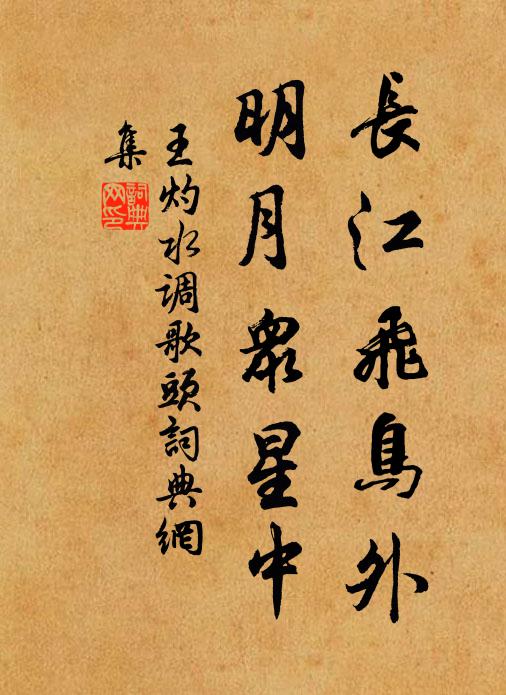 長江飛鳥外
明月衆星中
王灼水调歌頭詞典網
集
詞典网印